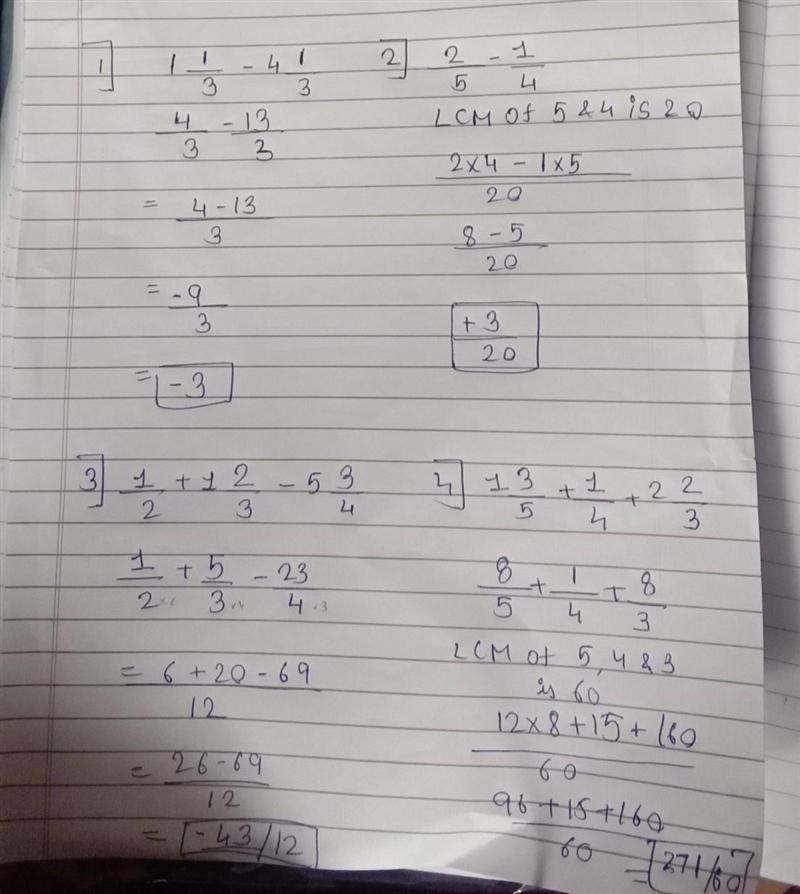 1] 1 1/3 - 4 1/3
4/3 - 13/3
= 4 - 13 / 3
= -9/3
= -3
2] 2/5 - 1/4
LCM of 5 & 4 is 20
2x4 - 1x5 / 20
8 - 5 / 20
+3/20
3] 1/2 + 1 2/3 - 5 3/4
1/2 + 5/3 - 23/4
= 6 + 20 - 69 / 12
= 26 - 69 / 12
= -43/12
4] 1 3/5 + 1/4 + 2 2/3
8/5 + 1/4 + 8/3
LCM of 5, 4 & 3
is 60
12x8 + 15 + 160 / 60
96 + 15 + 160 / 60
= 271/60